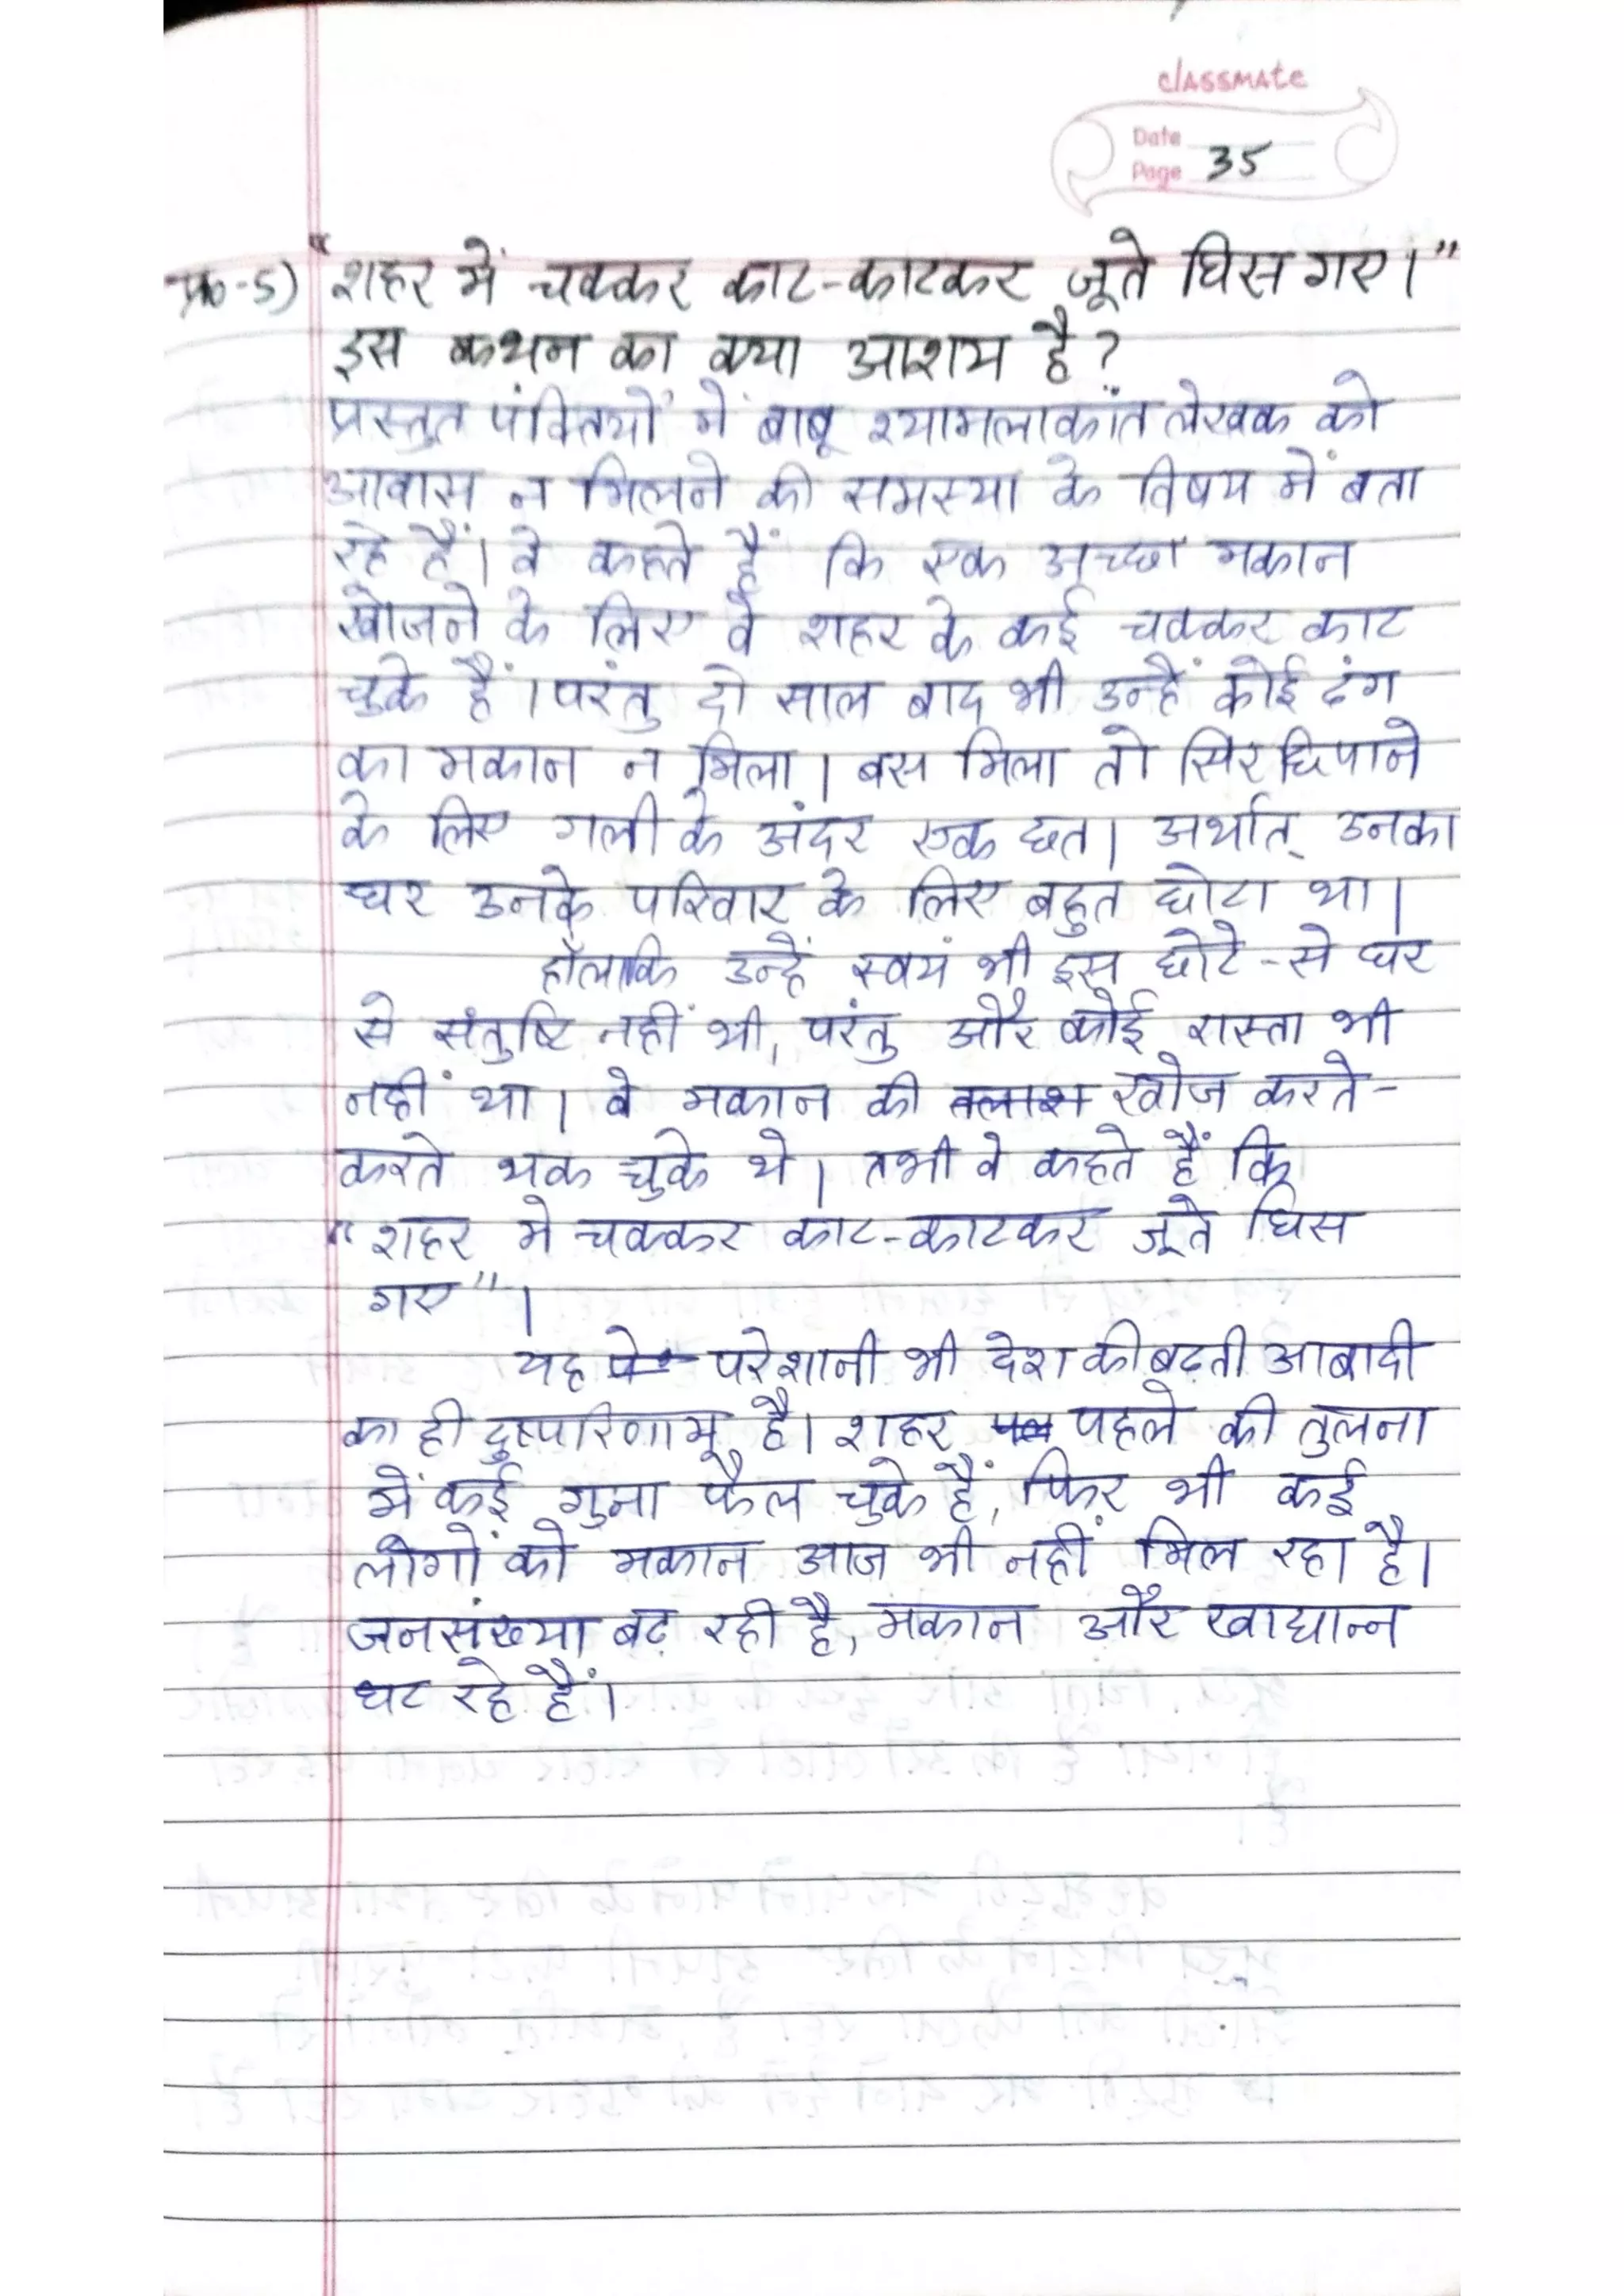 classmate
Date
Page 35
प्र०-5) "शहर में चक्कर काट-काटकर जूते घिस गए।"
इस कथन का क्या आशय है?
प्रस्तुत पंक्तियों में बाबू श्यामलाकांत लेखक को
आवास न मिलने की समस्या के विषय में बता
रहे हैं। वे कहते हैं कि एक अच्छा मकान
खोजने के लिए वे शहर के कई चक्कर काट
चुके हैं। परंतु दो साल बाद भी उन्हें कोई ढंग
का मकान न मिला। बस मिला तो सिर छिपाने
के लिए गली के अंदर एक छत। अर्थात् उनका
घर उनके परिवार के लिए बहुत छोटा था।
हाँलाकि उन्हें स्वयं भी इस छोटे-से घर
से संतुष्टि नहीं थी, परंतु और कोई रास्ता भी
नहीं था। वे मकान की तलाश खोज करते-
करते थक चुके थे। तभी वे कहते हैं कि
"शहर मे चक्कर काट-काटकर जूते घिस
गए"।
यह परेशानी भी देश की बढ़ती आबादी
का ही दुष्परिणाम है। शहर पहले की तुलना
में कई गुना फैल चुके हैं, फिर भी कई
लोगों को मकान आज भी नहीं मिल रहा है।
जनसंख्या बढ़ रही है, मकान और खाद्यान्न
घट रहे हैं।